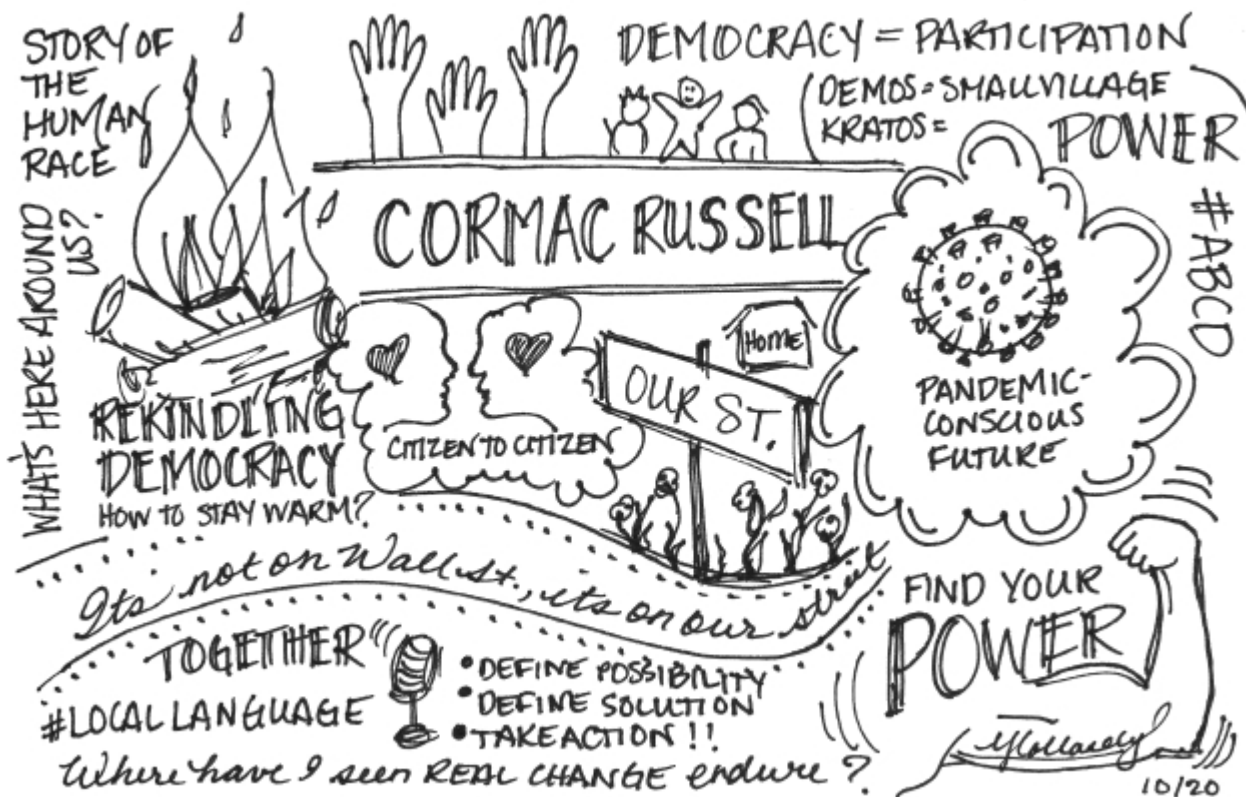 STORY OF
THE
HUMAN
RACE
WHAT'S HERE AROUND
US?
DEMOCRACY = PARTICIPATION
DEMOS = SMALL VILLAGE
KRATOS =
POWER
#ABCD
CORMAC RUSSELL
REKINDLING
DEMOCRACY
HOW TO STAY WARM?
CITIZEN TO CITIZEN
HOME
OUR ST.
PANDEMIC-
CONSCIOUS
FUTURE
Its not on Wall St., its on our street
TOGETHER
#LOCAL LANGUAGE
• DEFINE POSSIBILITY
• DEFINE SOLUTION
• TAKE ACTION !!
Where have I seen REAL CHANGE endure?
FIND YOUR
POWER
10/20